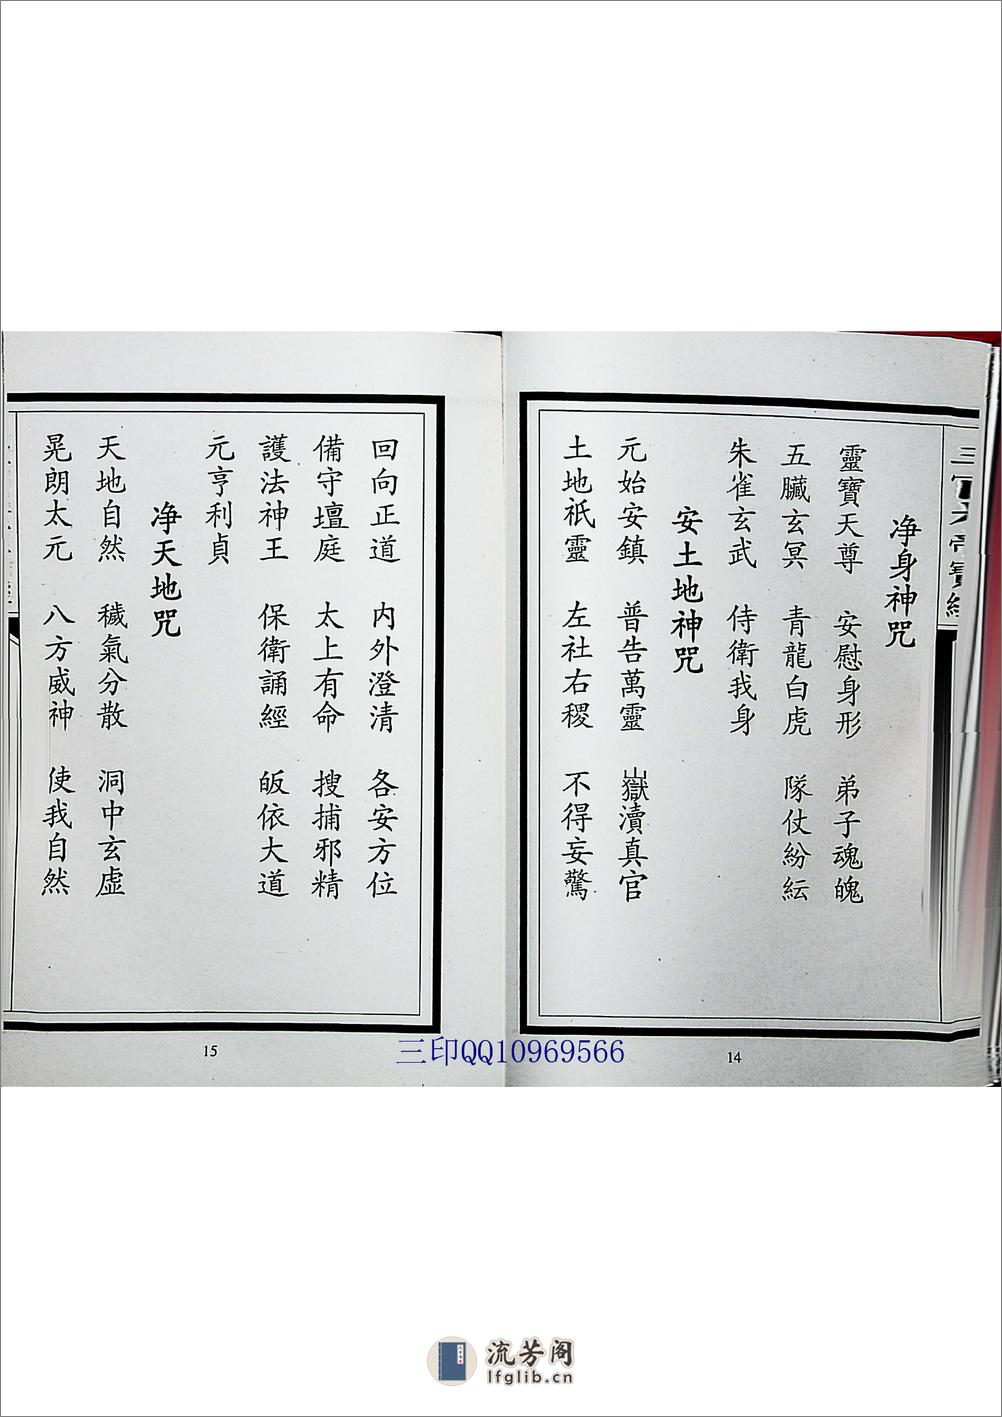 三官大帝寶經
净身神咒
靈寶天尊 安慰身形 弟子魂魄
五臟玄冥 青龍白虎 隊仗紛紜
朱雀玄武 侍衛我身
安土地神咒
元始安鎮 普告萬靈 嶽瀆真官
土地祇靈 左社右稷 不得妄驚
14
回向正道 内外澄清 各安方位
備守壇庭 太上有命 搜捕邪精
護法神王 保衛誦經 皈依大道
元亨利貞
净天地咒
天地自然 穢氣分散 洞中玄虛
晃朗太元 八方威神 使我自然
15
三印QQ10969566
流芳阁
lfglib.cn